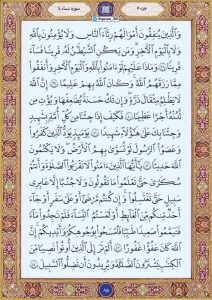 جزء ۵
سوره نساء ۴
وَٱلَّذِينَ يُنفِقُونَ أَمْوَٰلَهُمْ رِئَآءَ ٱلنَّاسِ وَلَا يُؤْمِنُونَ بِٱللَّهِ
وَلَا بِٱلْيَوْمِ ٱلْءَاخِرِ وَمَن يَكُنِ ٱلشَّيْطَٰنُ لَهُۥ قَرِينًا فَسَآءَ
قَرِينًا ٣٨ وَمَاذَا عَلَيْهِمْ لَوْ ءَامَنُوا۟ بِٱللَّهِ وَٱلْيَوْمِ ٱلْءَاخِرِ وَأَنفَقُوا۟
مِمَّا رَزَقَهُمُ ٱللَّهُ وَكَانَ ٱللَّهُ بِهِمْ عَلِيمًا ٣٩ إِنَّ ٱللَّهَ
لَا يَظْلِمُ مِثْقَالَ ذَرَّةٍ وَإِن تَكُ حَسَنَةً يُضَٰعِفْهَا وَيُؤْتِ مِن
لَّدُنْهُ أَجْرًا عَظِيمًا ٤٠ فَكَيْفَ إِذَا جِئْنَا مِن كُلِّ أُمَّةٍۭ بِشَهِيدٍ
وَجِئْنَا بِكَ عَلَىٰ هَٰٓؤُلَآءِ شَهِيدًا ٤١ يَوْمَئِذٍ يَوَدُّ ٱلَّذِينَ كَفَرُوا۟
وَعَصَوُا۟ ٱلرَّسُولَ لَوْ تُسَوَّىٰ بِهِمُ ٱلْأَرْضُ وَلَا يَكْتُمُونَ
ٱللَّهَ حَدِيثًا ٤٢ يَٰٓأَيُّهَا ٱلَّذِينَ ءَامَنُوا۟ لَا تَقْرَبُوا۟ ٱلصَّلَوٰةَ وَأَنتُمْ
سُكَٰرَىٰ حَتَّىٰ تَعْلَمُوا۟ مَا تَقُولُونَ وَلَا جُنُبًا إِلَّا عَابِرِى
سَبِيلٍ حَتَّىٰ تَغْتَسِلُوا۟ وَإِن كُنتُم مَّرْضَىٰٓ أَوْ عَلَىٰ سَفَرٍ أَوْ جَآءَ
أَحَدٌ مِّنكُم مِّنَ ٱلْغَآئِطِ أَوْ لَٰمَسْتُمُ ٱلنِّسَآءَ فَلَمْ تَجِدُوا۟ مَآءً
فَتَيَمَّمُوا۟ صَعِيدًا طَيِّبًا فَٱمْسَحُوا۟ بِوُجُوهِكُمْ وَأَيْدِيكُمْ إِنَّ
ٱللَّهَ كَانَ عَفُوًّا غَفُورًا ٤٣ أَلَمْ تَرَ إِلَى ٱلَّذِينَ أُوتُوا۟ نَصِيبًا مِّنَ
ٱلْكِتَٰبِ يَشْتَرُونَ ٱلضَّلَٰلَةَ وَيُرِيدُونَ أَن تَضِلُّوا۟ ٱلسَّبِيلَ ٤٤
۸۵